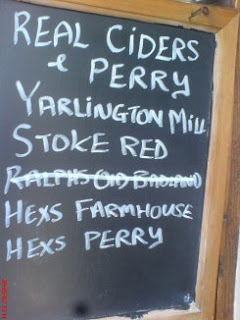 REAL CiDERS
& PERRY
YARLINGTON Mill
STOKE RED
RALPHS OLD BADLAND
HEXS FARMHOUSE
HEXS PERRY